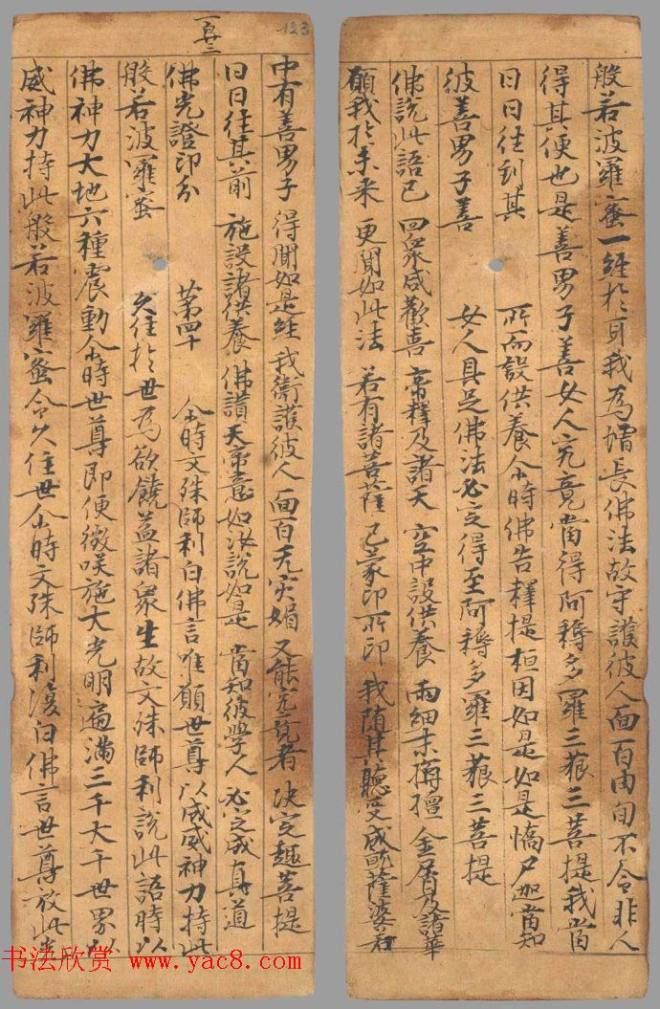 般若波羅蜜一經於耳我為增長佛法故守護彼人面百由旬不令非人
得其便也是善男子善女人究竟當得阿耨多羅三藐三菩提我當
日日往到其 所而設供養尒時佛告釋提桓因如是如是憍尸迦當知
彼善男子善 女人具足佛法必定得至阿耨多羅三藐三菩提
佛說此語已 四衆咸歡喜 帝釋及諸天 空中設供養 雨細末栴檀 金屑及諸華
願我於未来 更聞如此法 若有諸菩薩 已蒙印所印 我随其聽受 成就薩婆若
123
中有善男子 得聞如是經 我衛護彼人 面百无灾媚 又能究竟者 決定趣菩提
日日往其前 施設諸供養 佛讚天帝意 如汝說如是 當知彼學人 必定成真道
佛光證印分 第四十 尒時文殊師利白佛言唯願世尊以威威神力持此
般若波羅蜜 久住於世為欲饒益諸衆生故文殊師利說此語時以
佛神力大地六種震動尒時世尊即便微咲施大光明遍滿三千大千世界以
威神力持此般若波羅蜜令久住世尒時文殊師利復白佛言世尊放此光
书法欣赏 www.yac8.com